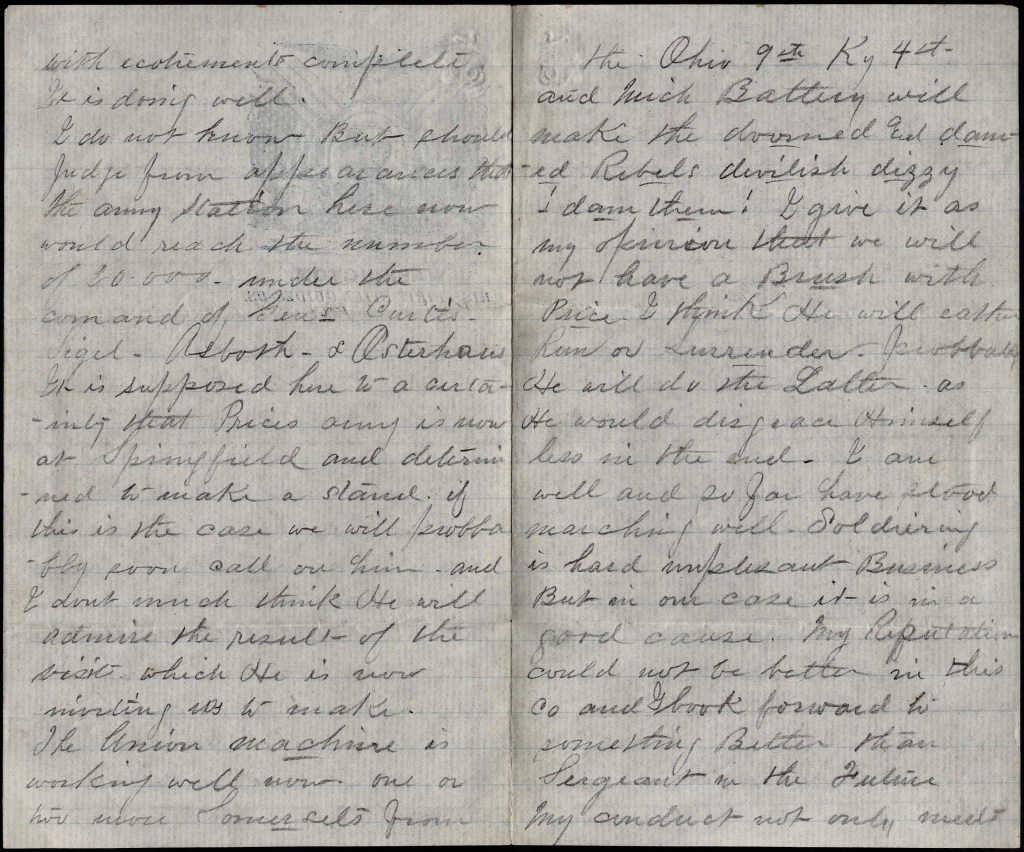 with ecotrements complete
It is doing well.
I do not know But should
Judge from appearances that
the army station here now
would reach the number
of 20.000. under the
comand of Genls Curtis -
Sigel - Asboth - & Osterhaus
It is supposed here to a certa-
-inty that Prices army is now
at Springfield and determi
-ned to make a stand. if
this is the case we will probba
-bly soon call on him. and
I dont much think He will
admire the result of the
visit which He is now
inviting us to make.
The Union machine is
working well now. one or
two more Somersets from
the Ohio 9th Ky 4th
and Mich Battery will
make the doomed dam-
-ed Rebels devilish dizzy
! dam them! I give it as
my opinion that we will
not have a Brush with
Price. I think He will eather
Run or Surrender - probbably
He will do the Latter. as
He would disgrace Himself
less in the end - I am
well and so far have stood
marching well. Soldiering
is hard unplesant Business
But in our case it is in a
good cause. My Reputation
could not be better in this
Co and I look forward to
something Better than
Sergeant in the Future
My conduct not only meets